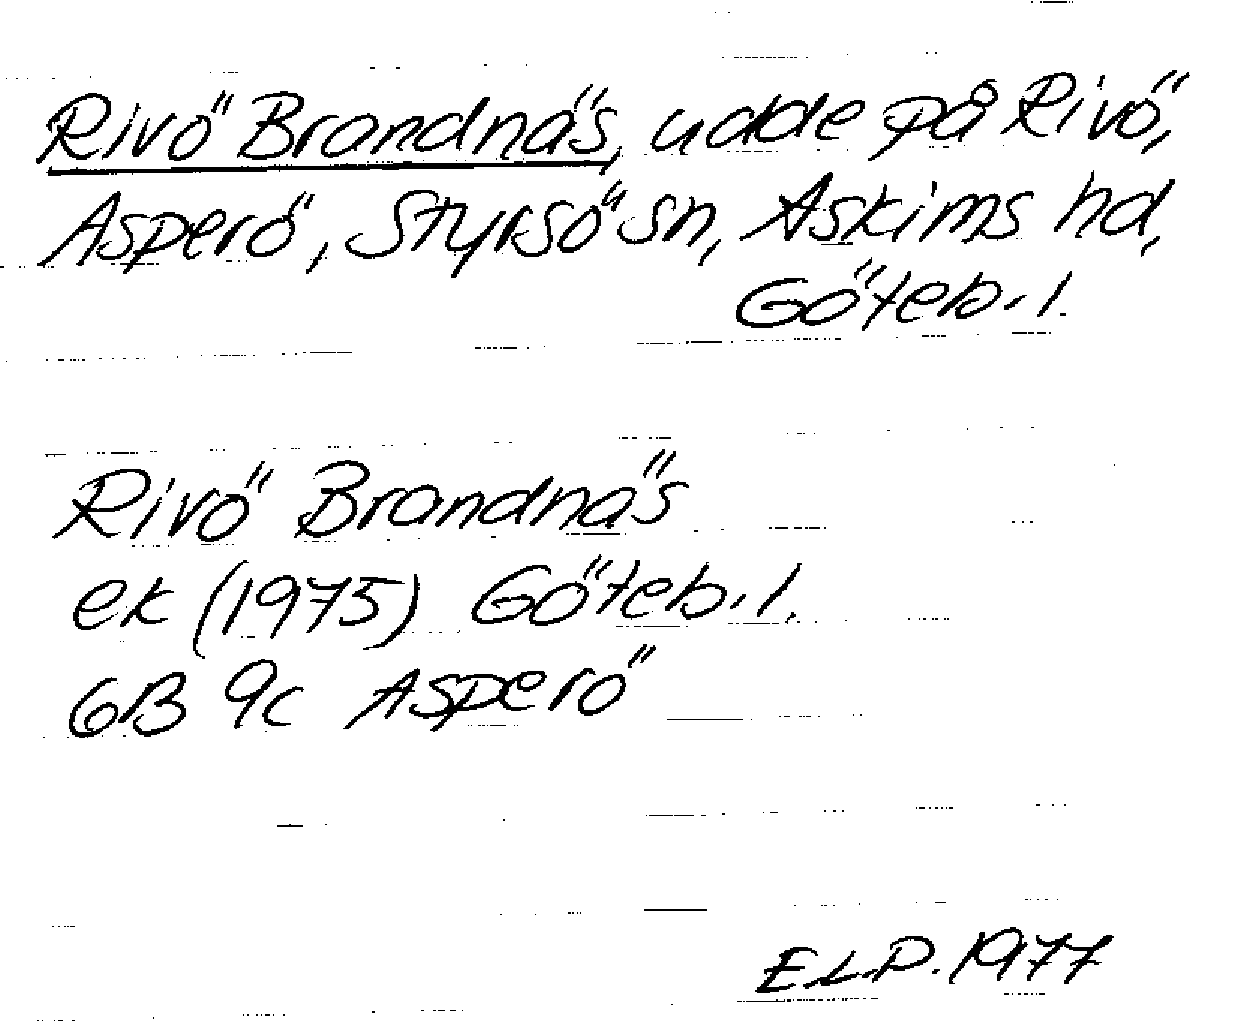 Rivö Brandnäs, udde på Rivö,
Asperö, Styrsö sn, Askims hd,
Göteb. l.
Rivö Brandnäs
ek (1975) Göteb. l.
6B 9c Asperö
E.L.P. 1977